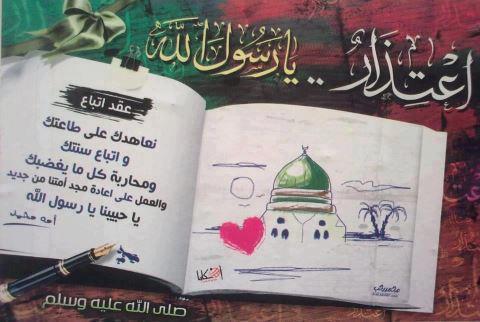 اعتذار .. يا رسول الله
عقد اتباع
نعاهدك على طاعتك
و اتباع سنتك
ومحاربة كل ما يغضبك
والعمل على اعادة مجد أمتنا من جديد
يا حبيبنا يا رسول الله
صلى الله عليه وسلم